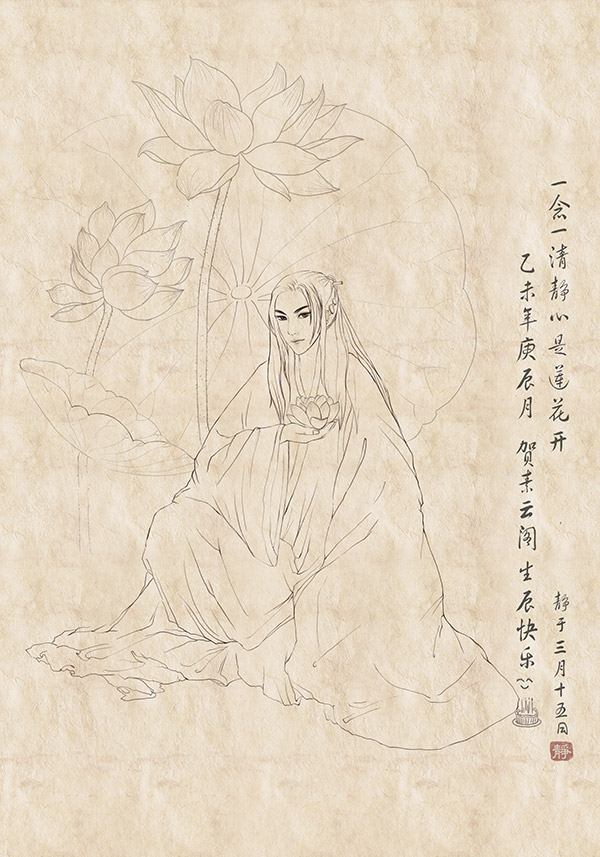 一念一清静心是莲花开
乙未年庚辰月 贺素云阁生辰快乐
静于三月十五日
靜